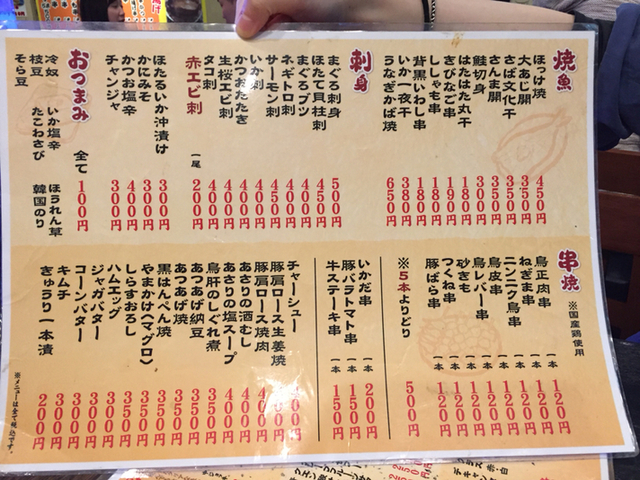 焼魚
ほっけ焼 450円
大あじ開 350円
さば文化干 350円
さんま開 300円
鮭切身 350円
はたはた丸干 180円
きびなご串 190円
ししゃも串 180円
背黒いわし串 180円
いか一夜干 380円
うなぎかば焼 650円
刺身
まぐろ刺身 500円
ほたて貝柱刺 450円
まぐろブツ 400円
ネギトロ刺 400円
サーモン刺 450円
いか刺 400円
かつおたたき 400円
生桜エビ刺 400円
タコ刺 400円
赤エビ刺 一尾 200円
ほたるいか沖漬け 300円
かにみそ 300円
かつお塩辛 400円
チャンジャ 300円
おつまみ 全て 100円
いか塩辛 ほうれん草
たこわさび 韓国のり
冷奴
枝豆
そら豆
串焼 ※国産鶏使用
鳥正肉串 一本 120円
ねぎま串 一本 120円
ニンニク鳥串 一本 120円
鳥皮串 一本 120円
鳥レバー串 一本 120円
砂ぎも 一本 120円
つくね串 一本 120円
豚ばら串 一本 120円
※5本よりどり 500円
いかだ串 一本 200円
豚バラトマト串 一本 150円
牛ステーキ串 一本 150円
チャーシュー
豚肩ロース生姜焼
豚肩ロース焼肉
あさりの酒むし 400円
あさりの塩スープ 400円
鳥肝のしぐれ煮 350円
あつあげ納豆 350円
あつあげ焼 350円
黒はんぺん焼 300円
やまかけ(マグロ) 350円
しらすおろし 300円
ハムエッグ 350円
ジャガバター 300円
コーンバター 300円
キムチ 300円
きゅうり一本漬 200円
※メニューは全て税込です。